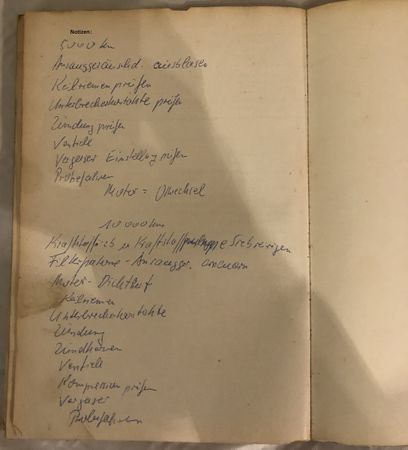 Notizen:
5000 km
Ansauggeräuschd. ausblasen
Keilriemen prüfen
Unterbrecherkontakte prüfen
Zündung prüfen
Ventile
Vergaser Einstellung prüfen
Probefahren
Motor = Ölwechsel
10000 km
Kraftstoffsieb u Kraftstoffpumpe
Filterpatrone - Ansaugger. erneuern
Motor - Dichtheit
Keilriemen
Unterbrecherkontakte
Zündung
Zündkerzen
Ventile
Kompression prüfen
Vergaser
Probefahren